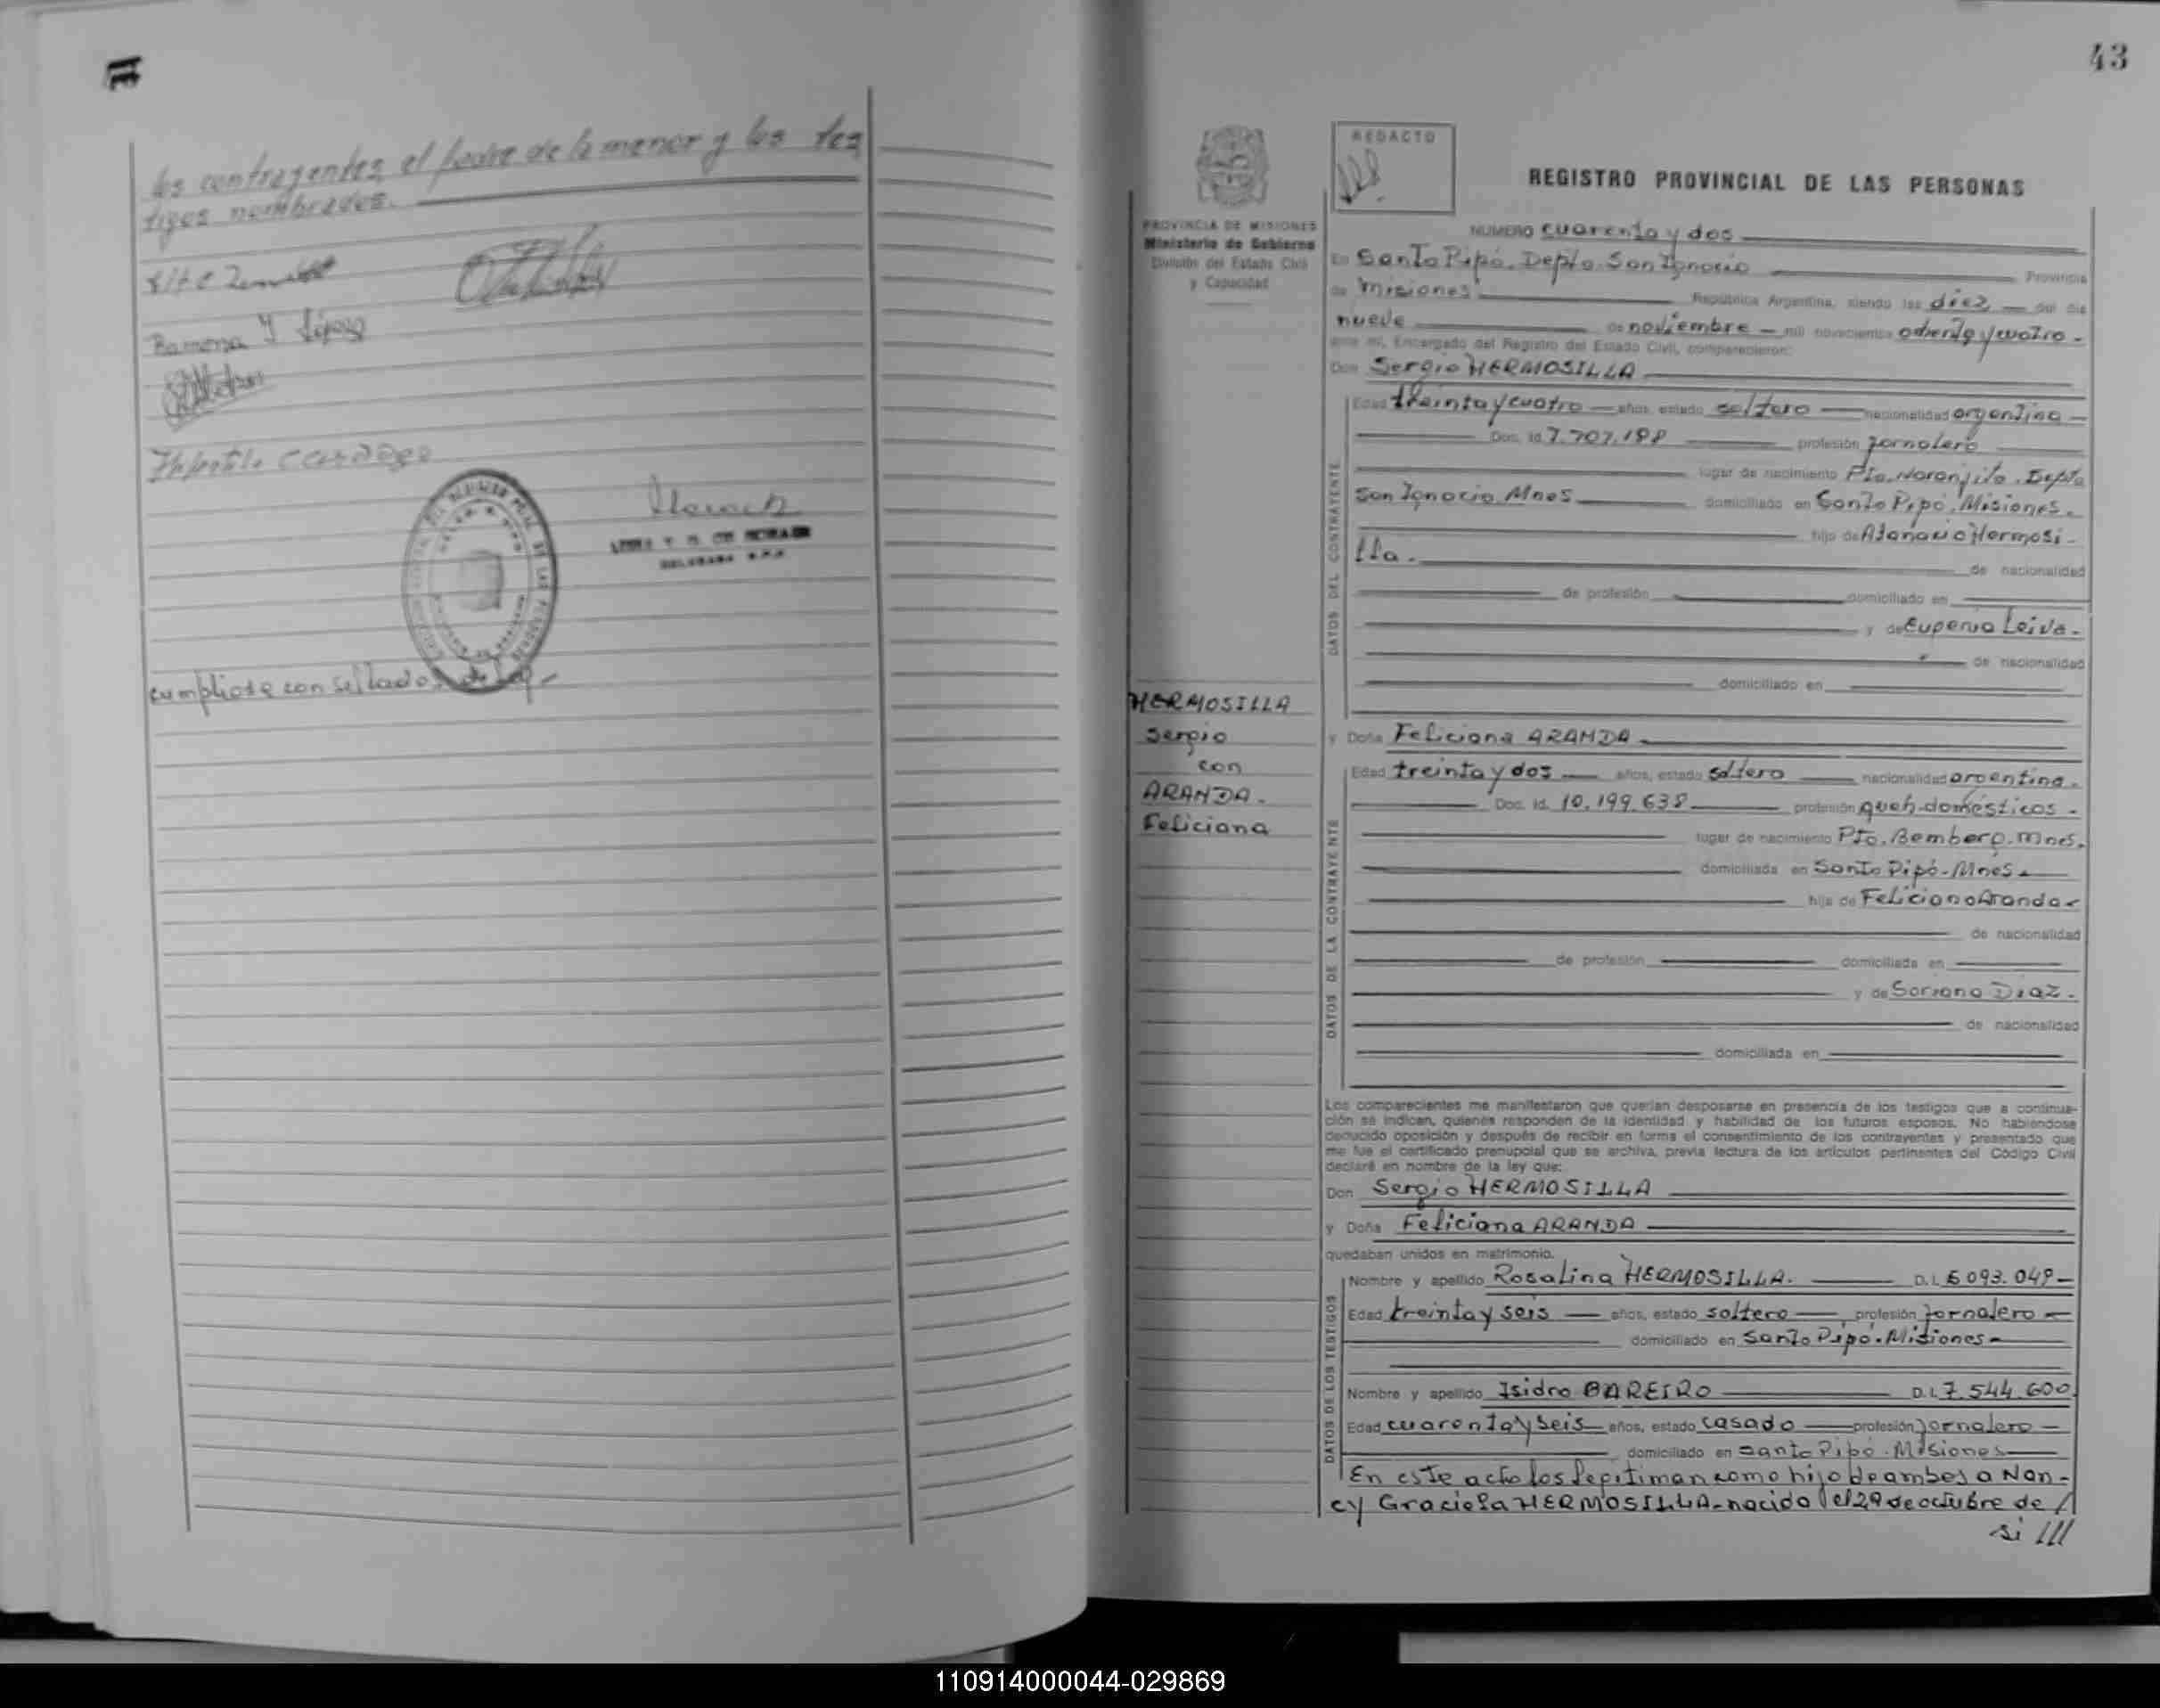 los contrayentes, el padre de la menor y los tes
tigos nombrados.
Ramona
cumpliose con sellado de Ley
43
REDACTO
REGISTRO PROVINCIAL DE LAS PERSONAS
PROVINCIA DE MISIONES
Ministerio de Gobierno
División del Estado Civil
y Capacidad
NUMERO cuarenta y dos
En Santo Pipó. Depto. San Ignacio Provincia
de Misiones República Argentina, siendo las diez del día
nueve de noviembre mil novecientos ochenta y cuatro -
ante mí, Encargado del Registro del Estado Civil, comparecieron:
Don Sergio HERMOSILLA
Edad treinta y cuatro años, estado soltero nacionalidad argentina
Doc. Id. 7.707.198 profesión jornalero
lugar de nacimiento Pto. Naranjito. Depto
San Ignacio. Mnes domiciliado en Santo Pipó. Misiones.
hijo de Atanacio Hermosi-
lla. de nacionalidad
de profesión domiciliado en
y de Eugenia Leiva.
de nacionalidad
domiciliado en
DATOS DEL CONTRAYENTE
HERMOSILLA
Sergio
con
ARANDA.
Feliciana
y Doña Feliciana ARANDA
Edad treinta y dos años, estado soltero nacionalidad argentina.
Doc. Id. 10.199.638 profesión queh. domésticos -
lugar de nacimiento Pto. Bemberg. Mnes.
domiciliada en Santo Pipó - Mnes
hija de Feliciano Aranda
de nacionalidad
de profesión domiciliada en
y de Soriana Diaz.
de nacionalidad
domiciliada en
DATOS DE LA CONTRAYENTE
Los comparecientes me manifestaron que querían desposarse en presencia de los testigos que a continua-
ción se indican, quienes responden de la identidad y habilidad de los futuros esposos. No habiéndose
deducido oposición y después de recibir en forma el consentimiento de los contrayentes y presentado que
me fue el certificado prenupcial que se archiva, previa lectura de los artículos pertinentes del Código Civil
declaré en nombre de la ley que:
Don Sergio HERMOSILLA
y Doña Feliciana ARANDA
quedaban unidos en matrimonio.
Nombre y apellido Rosalina HERMOSILLA. D.I. 6 093.049
Edad treinta y seis años, estado soltero profesión jornalero
domiciliado en Santo Pipó. Misiones
Nombre y apellido Isidro BAREIRO D.I. 7.544.600
Edad cuarenta y seis años, estado casado profesión jornalero
domiciliado en Santo Pipó. Misiones
DATOS DE LOS TESTIGOS
En este acto los legitiman como hijo de ambos a Nan-
cy Graciela HERMOSILLA - nacido el 29 de octubre de
si ///
110914000044-029869